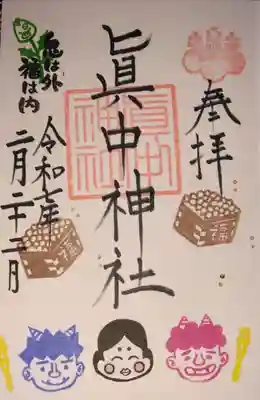 奉拝
眞中神社
令和七年
二月二十二月
鬼は外
福は内
眞中
神社
福
福